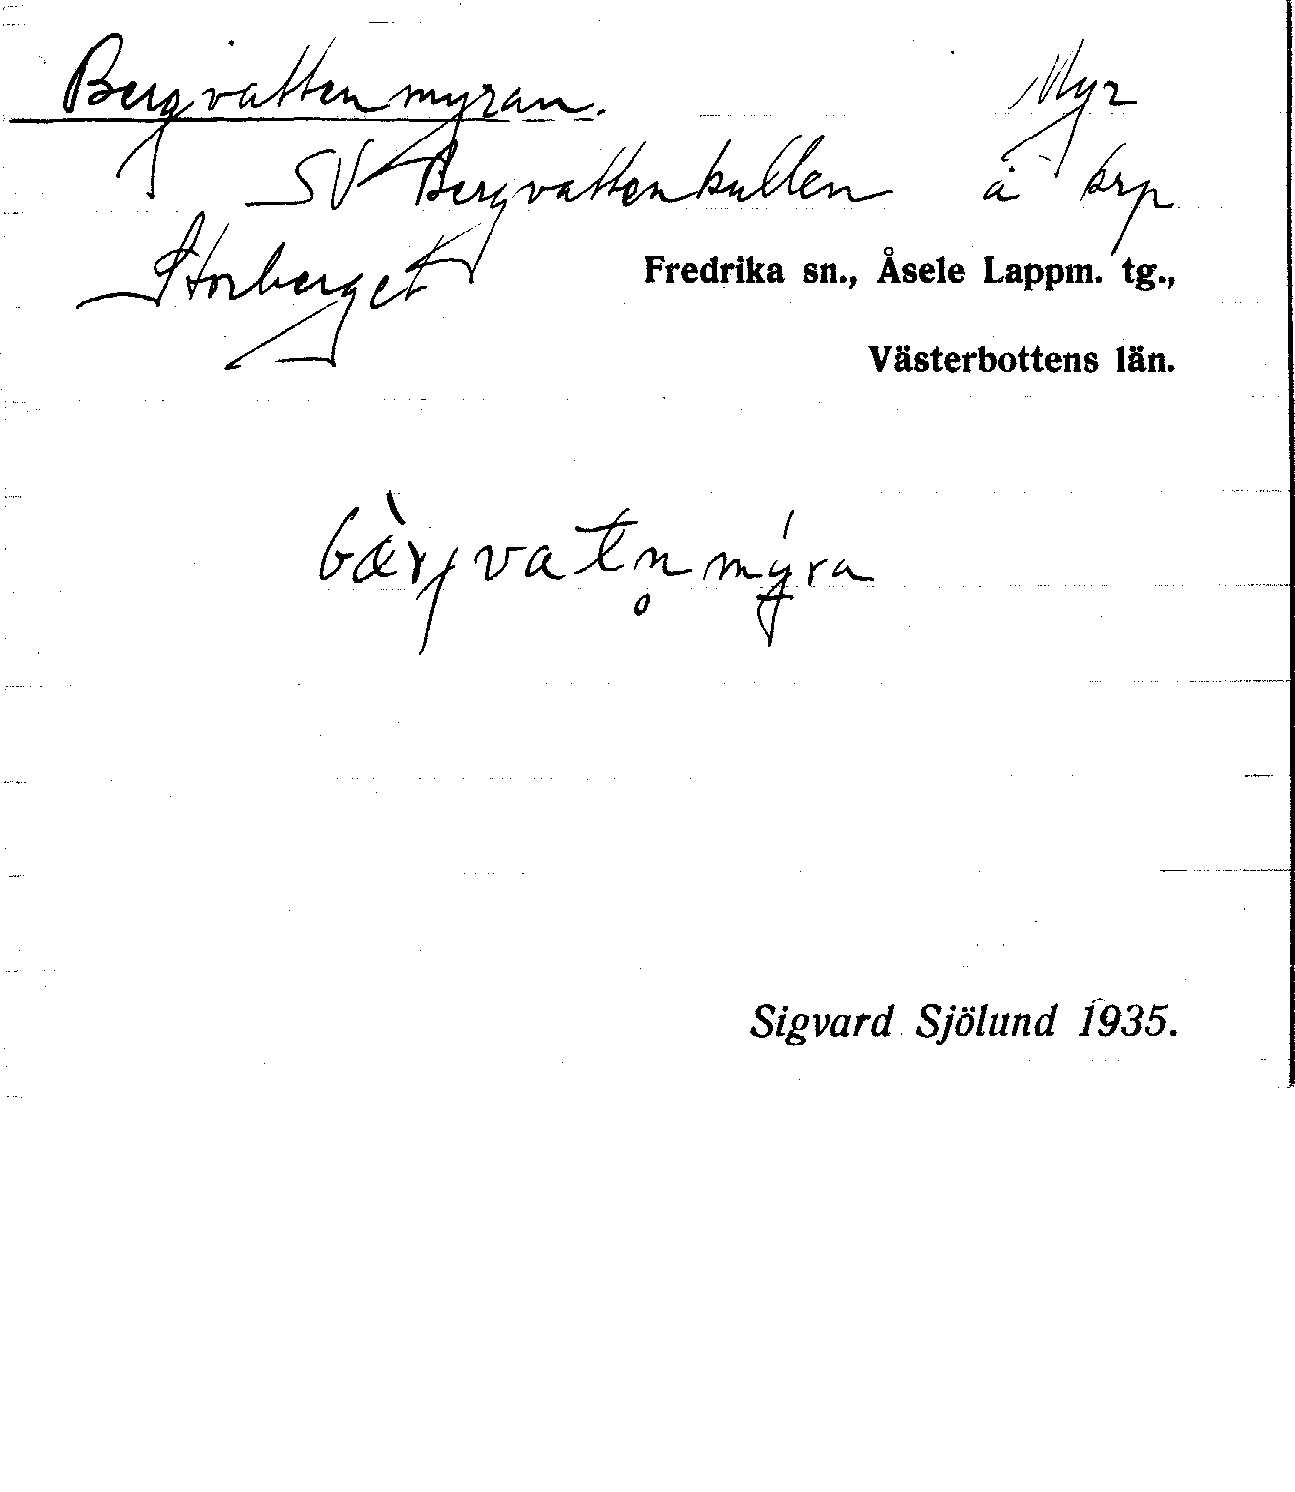 Bergvattenmyran. Myr
SV Bergvattenkullen å krp
Storberget Fredrika sn., Åsele Lappm. tg.,
Västerbottens län.
bæ̀rjvatn̥mýra
Sigvard Sjölund 1935.